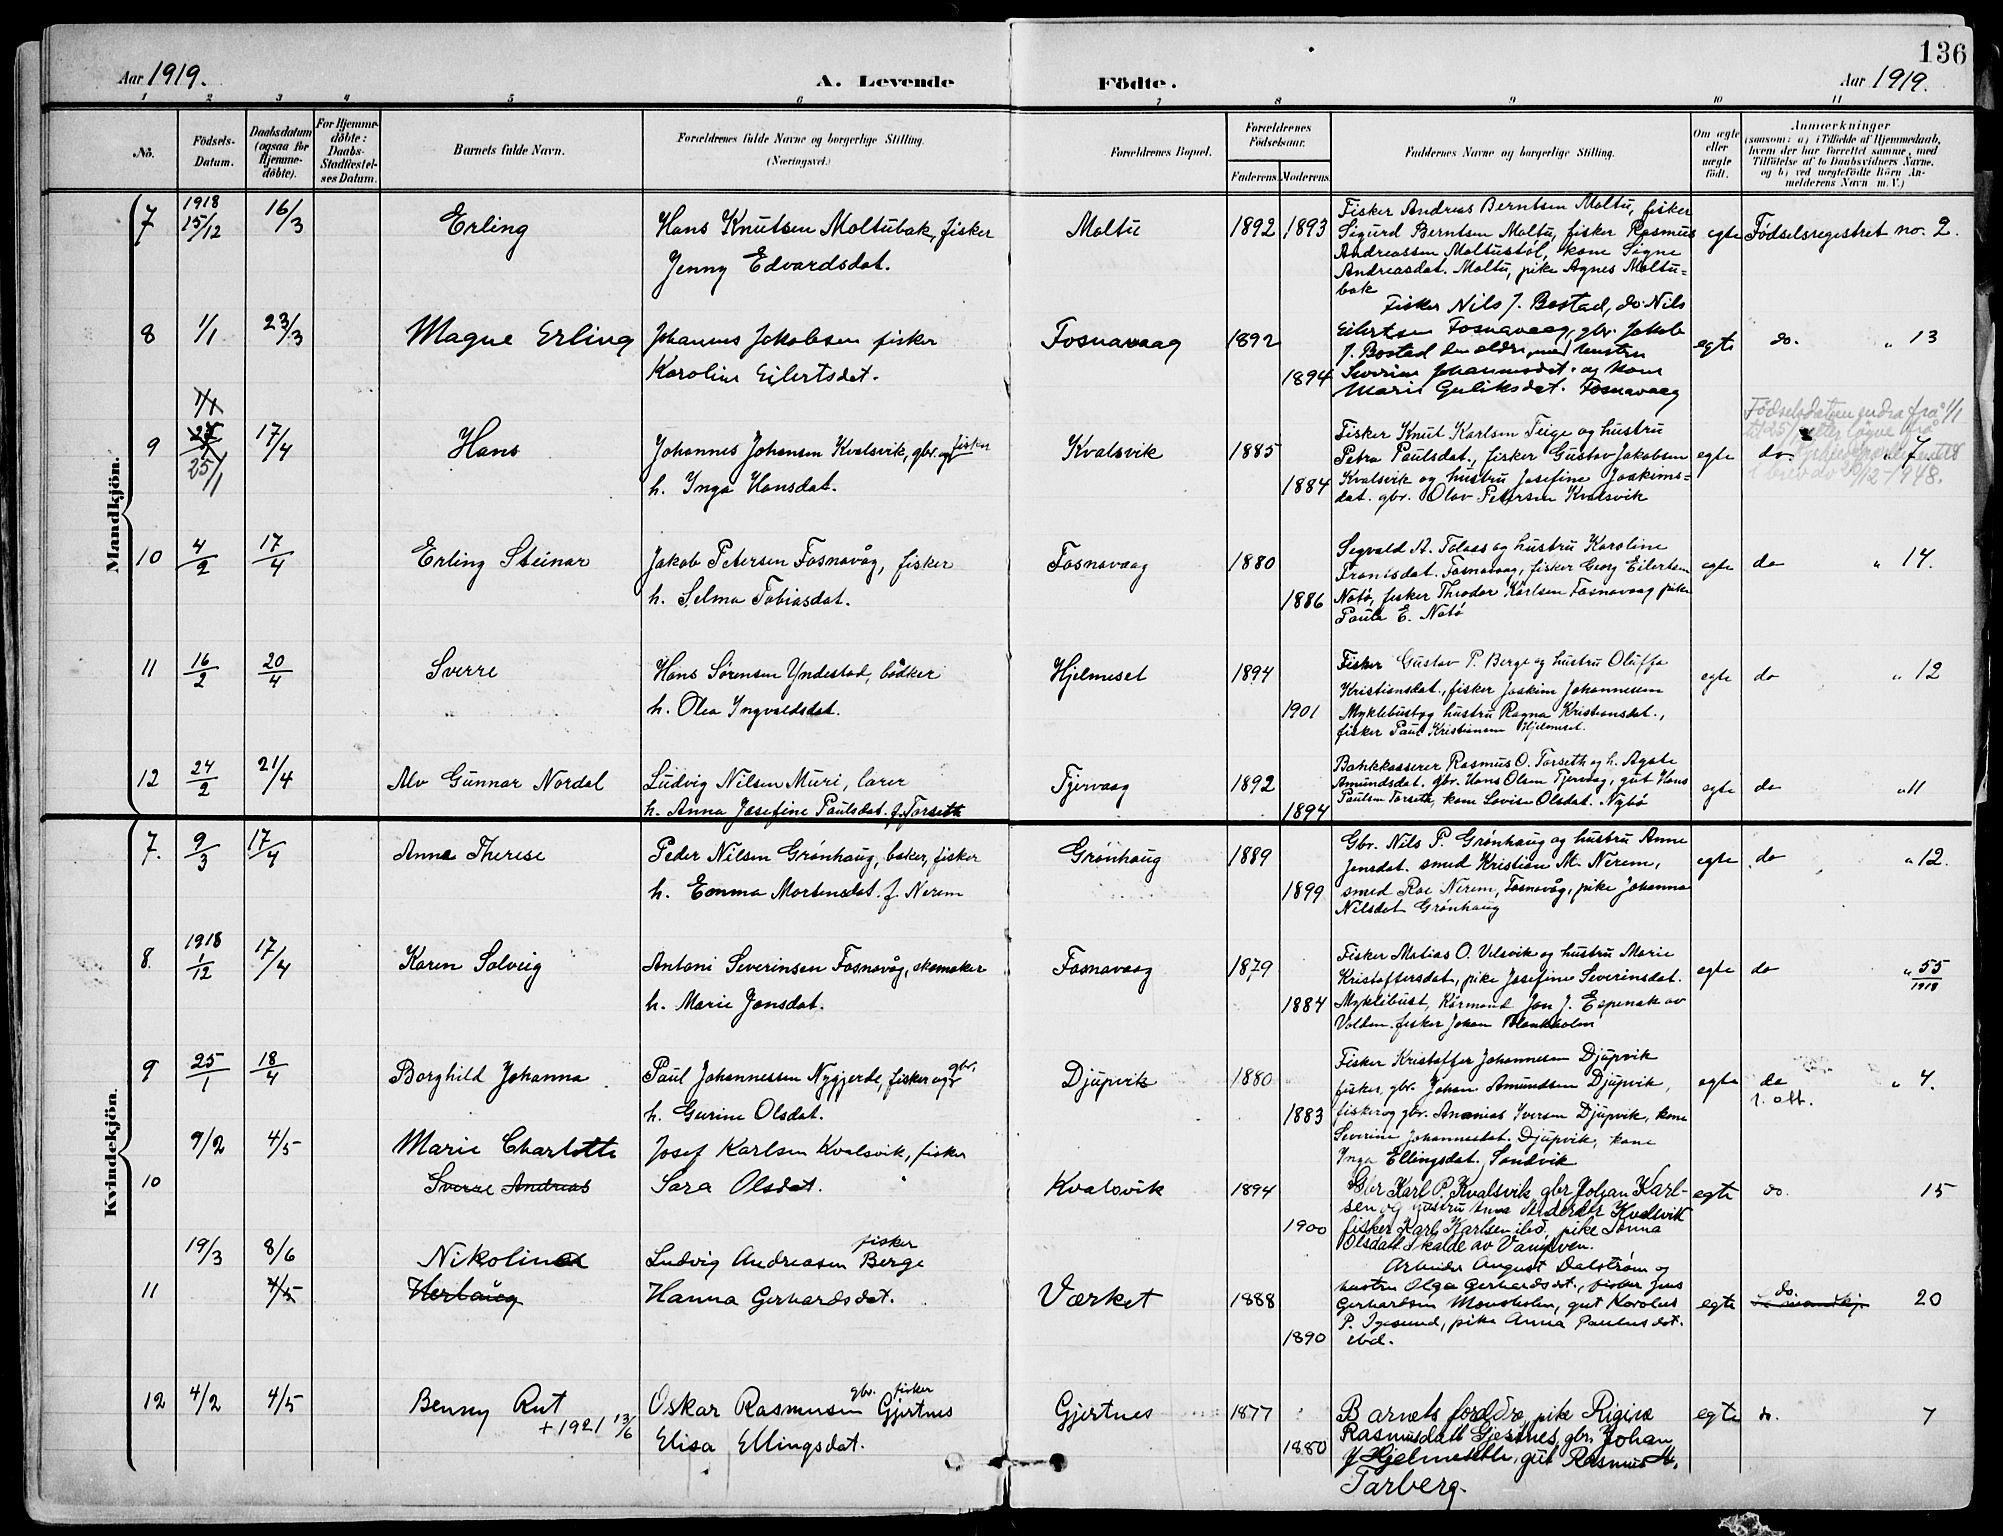 136
Aar 1919. A. Levende Födte. Aar 1919.
1 2 3 4 5 6 7 8 9 10 11
No. Födsels-Datum. Daabsdatum (ogsaa for Hjemme-döbte). For Hjemme-döbte: Daabs-Stadfæstel-ses Datum. Barnets fulde Navn. Forældrenes fulde Navne og borgerlige Stilling. (Næringsvei.) Forældrenes Bopæl. Forældrenes Födselsaar. Faderens. Moderens. Faddernes Navne og borgerlige Stilling. Om ægte eller uægte født. Anmærkninger
(saasom: a) i Tilfælde af Hjemmedaab,
hvem der har forrettet samme, med
Tilföielse af to Daabsvidners Navne.
og b) ved uægtefödte Börn An-
melderens Navn m. V.)
Mandkjön.
7 1918 15/12 16/3 Erling Hans Knutsen Moltubak, fisker
Jenny Edvardsdat.
Moltu 1892 1893
Fisker Andreas Berntsen Moltu, fisker
Sigurd Berntsen Moltu, fisker Rasmus
Andreassen Moltustöl, kone Signe
Andreasdat. Moltu, pike Agnes Moltu-
bak
egte Födselsregistret no. 2.
8 1/1 23/3 Magne Erling Johannes Jakobsen fisker
Karoline Eilertsdat.
Fosnavaag 1892 1894
Fisker Nils J. Bostad, do Nils
Eilertsen Fosnavaag, gbr. Jakob
J. Bostad den eldre, med hustru
Severine Johannesdat. og kone
Marie Guliksdat. Fosnavaag
egte do. " 13
9 1/1 25/1 17/4 Hans Johannes Johansen Kvalsvik, gbr. og fisker
h. Inga Hansdat.
Kvalsvik 1885 1884
Fisker Knut Karlsen Teige og hustru
Petra Paulsdat., fisker Gustav Jakobsen
Kvalsvik og hustru Josefine Joakims-
dat. gbr. Olav Petersen Kvalsvik
egte do 7
Födselsdatoen endra frå 1/1
til 25/1 etter løyve frå
i brev av 20/12-1948.
10 4/2 17/4 Erling Steinar Jakob Petersen Fosnavåg, fisker
h. Selma Tobiasdat.
Fosnavaag 1880 1886
Segvald A. Tolaas og hustru Karoline
Frantsdat. Fosnavaag, fisker Georg Eilertsen
Notö, fisker Theodor Karlsen Fosnavaag pike
Paula E. Notö
egte do " 14.
11 16/2 20/4 Sverre Hans Sörensen Yndestad, bödker
h. Olea Ingvaldsdat.
Hjelmeset 1894 1901
Fisker Gustav P. Berge og hustru Oluffa
Kristiansdat., fisker Joakim Johannesen
Myklebust og hustru Ragna Kristiansdat.,
fisker Paul Kristiansen Hjelmeset.
egte do " 12
12 24/2 21/4 Alv Gunnar Nordal Ludvig Nilsen Muri, lærer
h. Anna Josefine Paulsdat. f. Torseth
Tjervaag 1892 1894
Bankkasserer Rasmus O. Torseth og h. Agate
Amundsdat. gbr. Hans Olsen Tjervaag, gut Hans
Paulsen Torseth, kone Lovise Olsdat. Nybö
egte do " 11
Kvindekjön.
7. 9/3 17/4 Anna Therese Peder Nilsen Grönhaug, baker, fisker
h. Emma Mortensdat. f. Nerem
Grönhaug 1889 1899
Gbr. Nils P. Grönhaug og hustru Anne
Jensdat. smed Kristian M. Nerem,
smed Roe Nerem, Fosnavåg, pike Johanna
Nilsdat Grönhaug
egte do " 12.
8. 1918 1/12 17/4 Karen Solveig Antoni Severinsen Fosnavåg, skomaker
h. Marie Jonsdat.
Fosnavaag 1879 1884
Fisker Matias O. Ulsvik og hustru Marie
Kristoffersdat, pike Josefine Severinsdat.
Myklebust, Kårmand Jon J. Espenak av
Volden. fisker Johan Blankholm
egte do " 55
1918
9 25/1 18/4 Borghild Johanna Paul Johannessen Nygjerde, fisker og gbr.
h. Gurine Olsdat.
Djupvik 1880 1883
Fisker Kristoffer Johannesen Djupvik
fisker, gbr. Johan Amundsen Djupvik,
fisker og gbr. Ananias Iversen Djupvik, kone
Severine Johannesdat. Djupvik, kone
Inga Ellingsdat. Sandvik
egte do " 4.
1. att.
10 9/2 4/5 Marie Charlotte Josef Karlsen Kvalsvik, fisker
Sverre Andreas Sara Olsdat.
Kvalsvik 1894 1900
Gbr Karl P. Kvalsvik, gbr Johan Karl-
sen og hustru Anna Andersdt Kvalsvik
fisker Karl Karlsen ibid, pike Janna
Olsdatt. Skalde av Vanylven.
egte do. 15
11 19/3 8/6 Nikoline Ludvig Andreasen Berge fisker
4/5 Herlaug Hanna Gerhardsdat.
Værket 1888 1890
Arbeider August Dalström og
hustru Olga Gerhardsdat., fisker Jens
Gerhardsen Mousholm, gut Karolus
P. Igesund, pike Anna Paulusdat.
ibid.
egte do. 20
12 4/2 4/5 Benny Rut Oskar Rasmusen Gjertnes gbr. fisker
+ 1921 13/6 Elisa Ellingsdat.
Gjertnes 1877 1880
Barnets foreldre, pike Rigine
Rasmusdatt Gjertnes, gbr. Johan
J Hjelmeseth, gut Rasmus A.
Tarberg.
egte do. 7